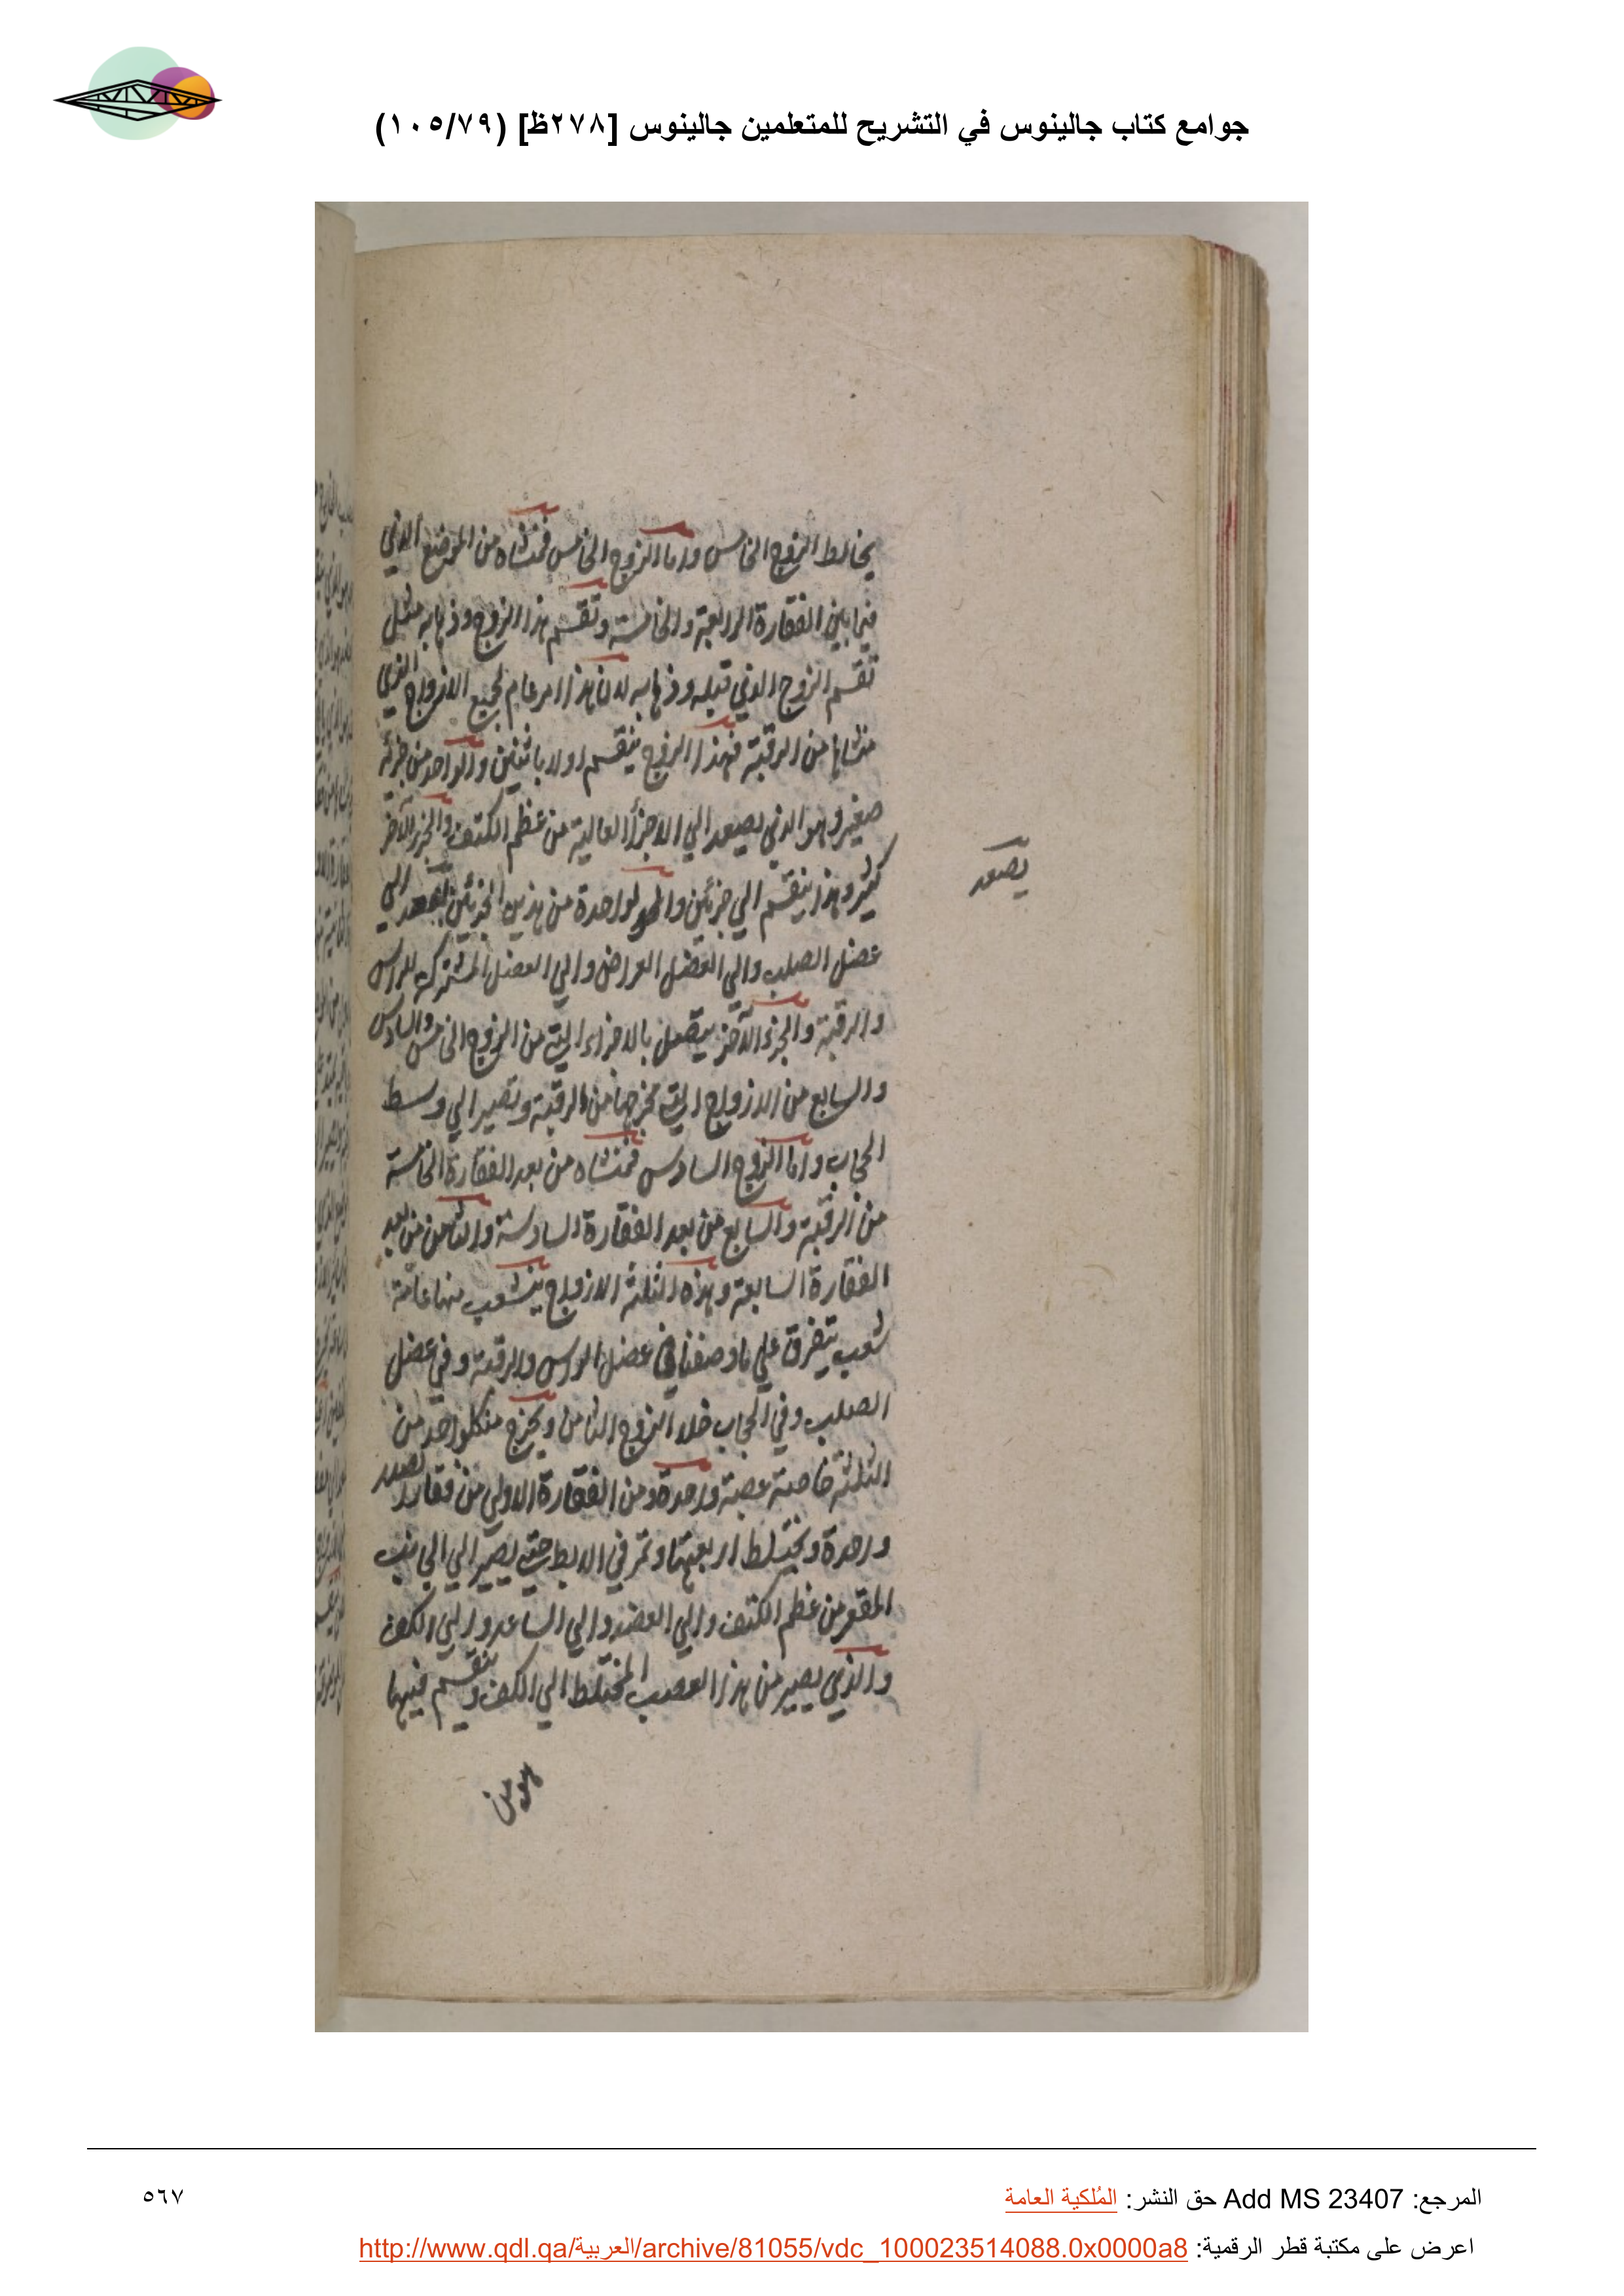 جوامع كتاب جالينوس في التشريح للمتعلمين جالينوس [٢٧٨ظ] (١٠٥/٧٩)
يخالط الزوج الخامس واما الزوج الخامس فمنشاه من الموضع الذي
فيما بين الفقارة الرابعة والخامسة وتقسم هذا الزوج وذهابه مثل
تقسم الزوج الذي قبله وذهابه لان هذا امر عام لجميع الازواج الذي
منشاها من الرقبة فهذا الزوج ينقسم اولا باثنين والواحد من جزئه
صغير وهو الذي يصعد الي الاجزأ العالية من عظم الكتف والجزء الآخر
كثير وهذا ينقسم الي جزئين والواحدة من هذين الجزئين الي
يصعد
عضل الصلب والي العضل العراض والي العضل المشتركة للراس
والرقبة والجزء الآخر يتصل بالاجزاء التي من الزوج الخامس والسادس
والسابع من الازواج التي مخرجها من الرقبة وتصير الي وسط
الحجاب واما الزوج السادس فمنشاه من بعد الفقارة الخامسة
من الرقبة والسابع من بعد الفقارة السادسة والثامن من بعد
الفقارة السابعة وهذه الثلثة الازواج ينشعب منها عامة
شعب يتفرق علي ما وصفنا في عضل الراس والرقبة وفي عضل
الصلب وفي الحجاب خلا الزوج الثامن ويخرج من كلواحد من
الثلثة خاصة عصبة واحدة ومن الفقارة الاولي من فقار الصدر
واحدة ويختلط اربعتها وتمر في الابط حتي يصير الي الجانب
المقعر من عظم الكتف والي العضد والي الساعد والي الكف
والذي يصير من هذا العصب المختلط الي الكف وينقسم فيها
هو من
المرجع: Add MS 23407 حق النشر: المُلكية العامة
٥٦٧
اعرض على مكتبة قطر الرقمية: http://www.qdl.qa/العربية/archive/81055/vdc_100023514088.0x0000a8